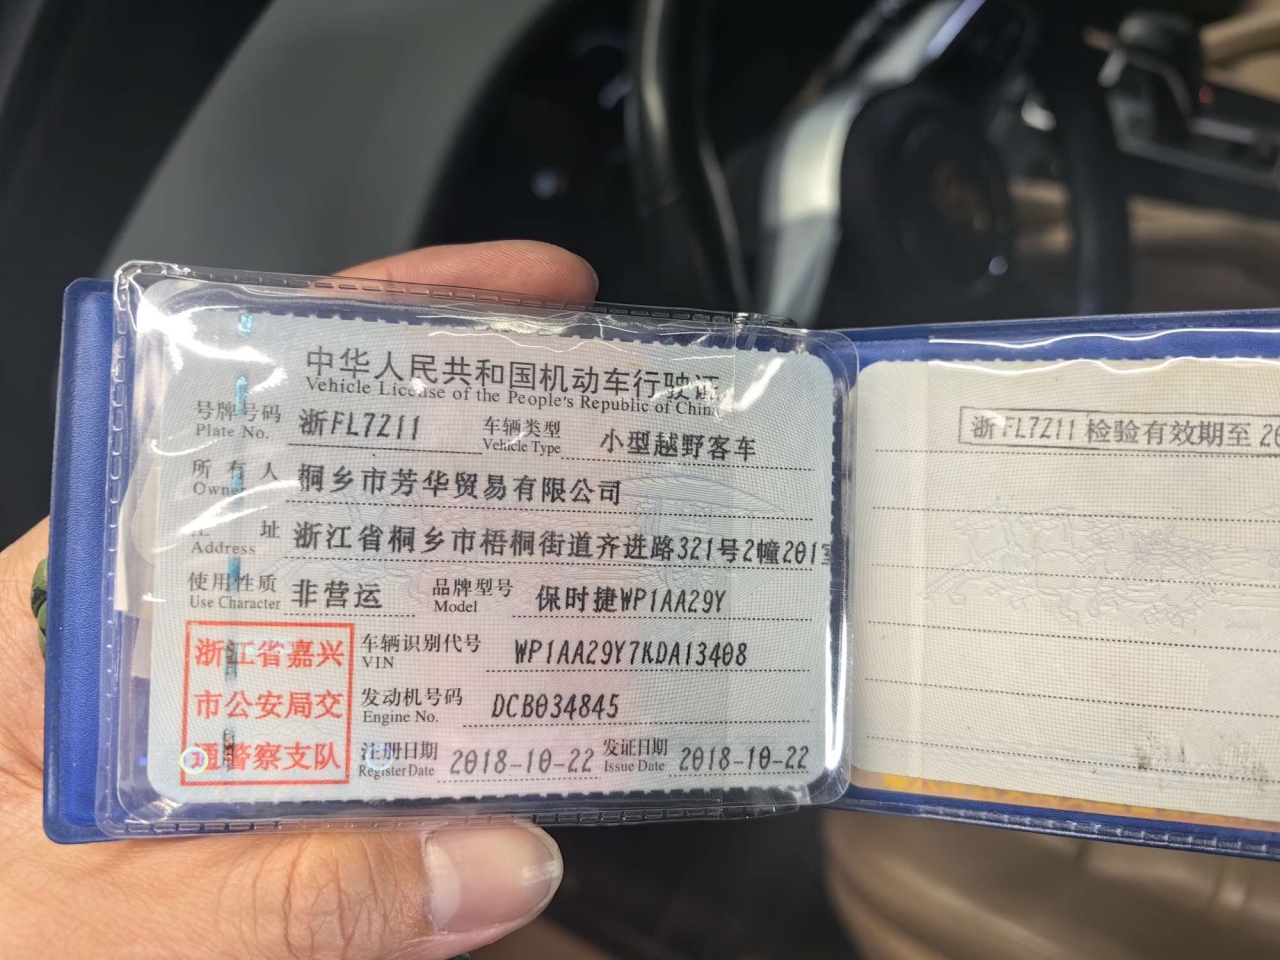 中华人民共和国机动车行驶证
Vehicle License of the People's Republic of China
号牌号码 浙FL7Z11 车辆类型 小型越野客车
Plate No. Vehicle Type
所有人 桐乡市芳华贸易有限公司
Owner
住址 浙江省桐乡市梧桐街道齐进路321号2幢201室
Address
使用性质 非营运 品牌型号 保时捷WP1AA29Y
Use Character Model
浙江省嘉兴
市公安局交
通警察支队
车辆识别代号 WP1AA29Y7KDA13408
VIN
发动机号码 DCB034845
Engine No.
注册日期 2018-10-22 发证日期 2018-10-22
Register Date Issue Date
浙FL7Z11 检验有效期至 20